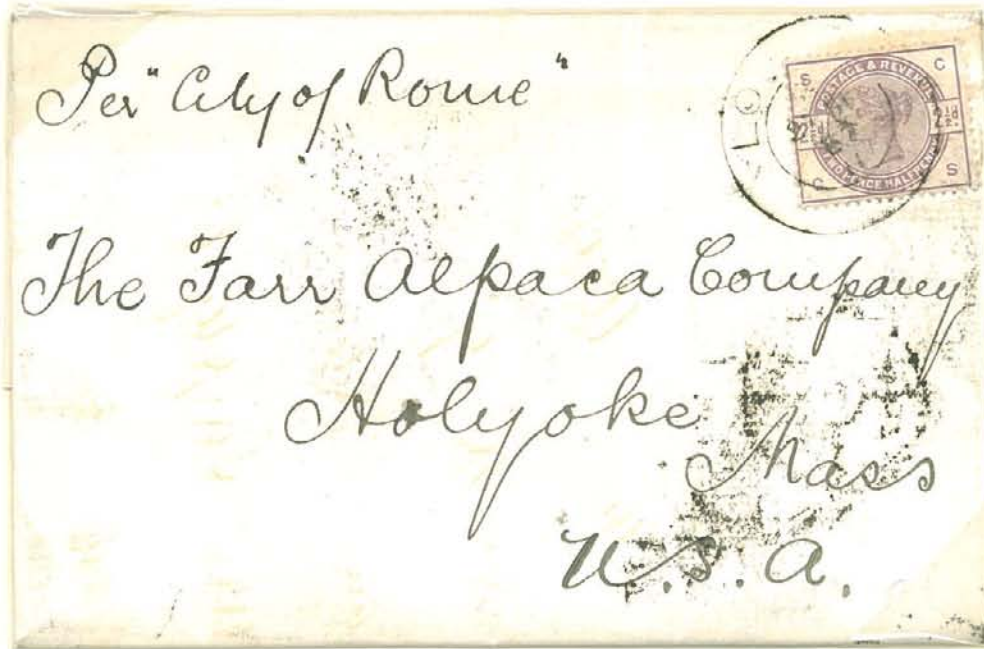 Per "City of Rome"
LO
S C
POSTAGE & REVENUE
2½d. 2½d.
TWO PENCE HALFPENNY
C S
The Farr Alpaca Company
Holyoke
Mass
U.S.A.